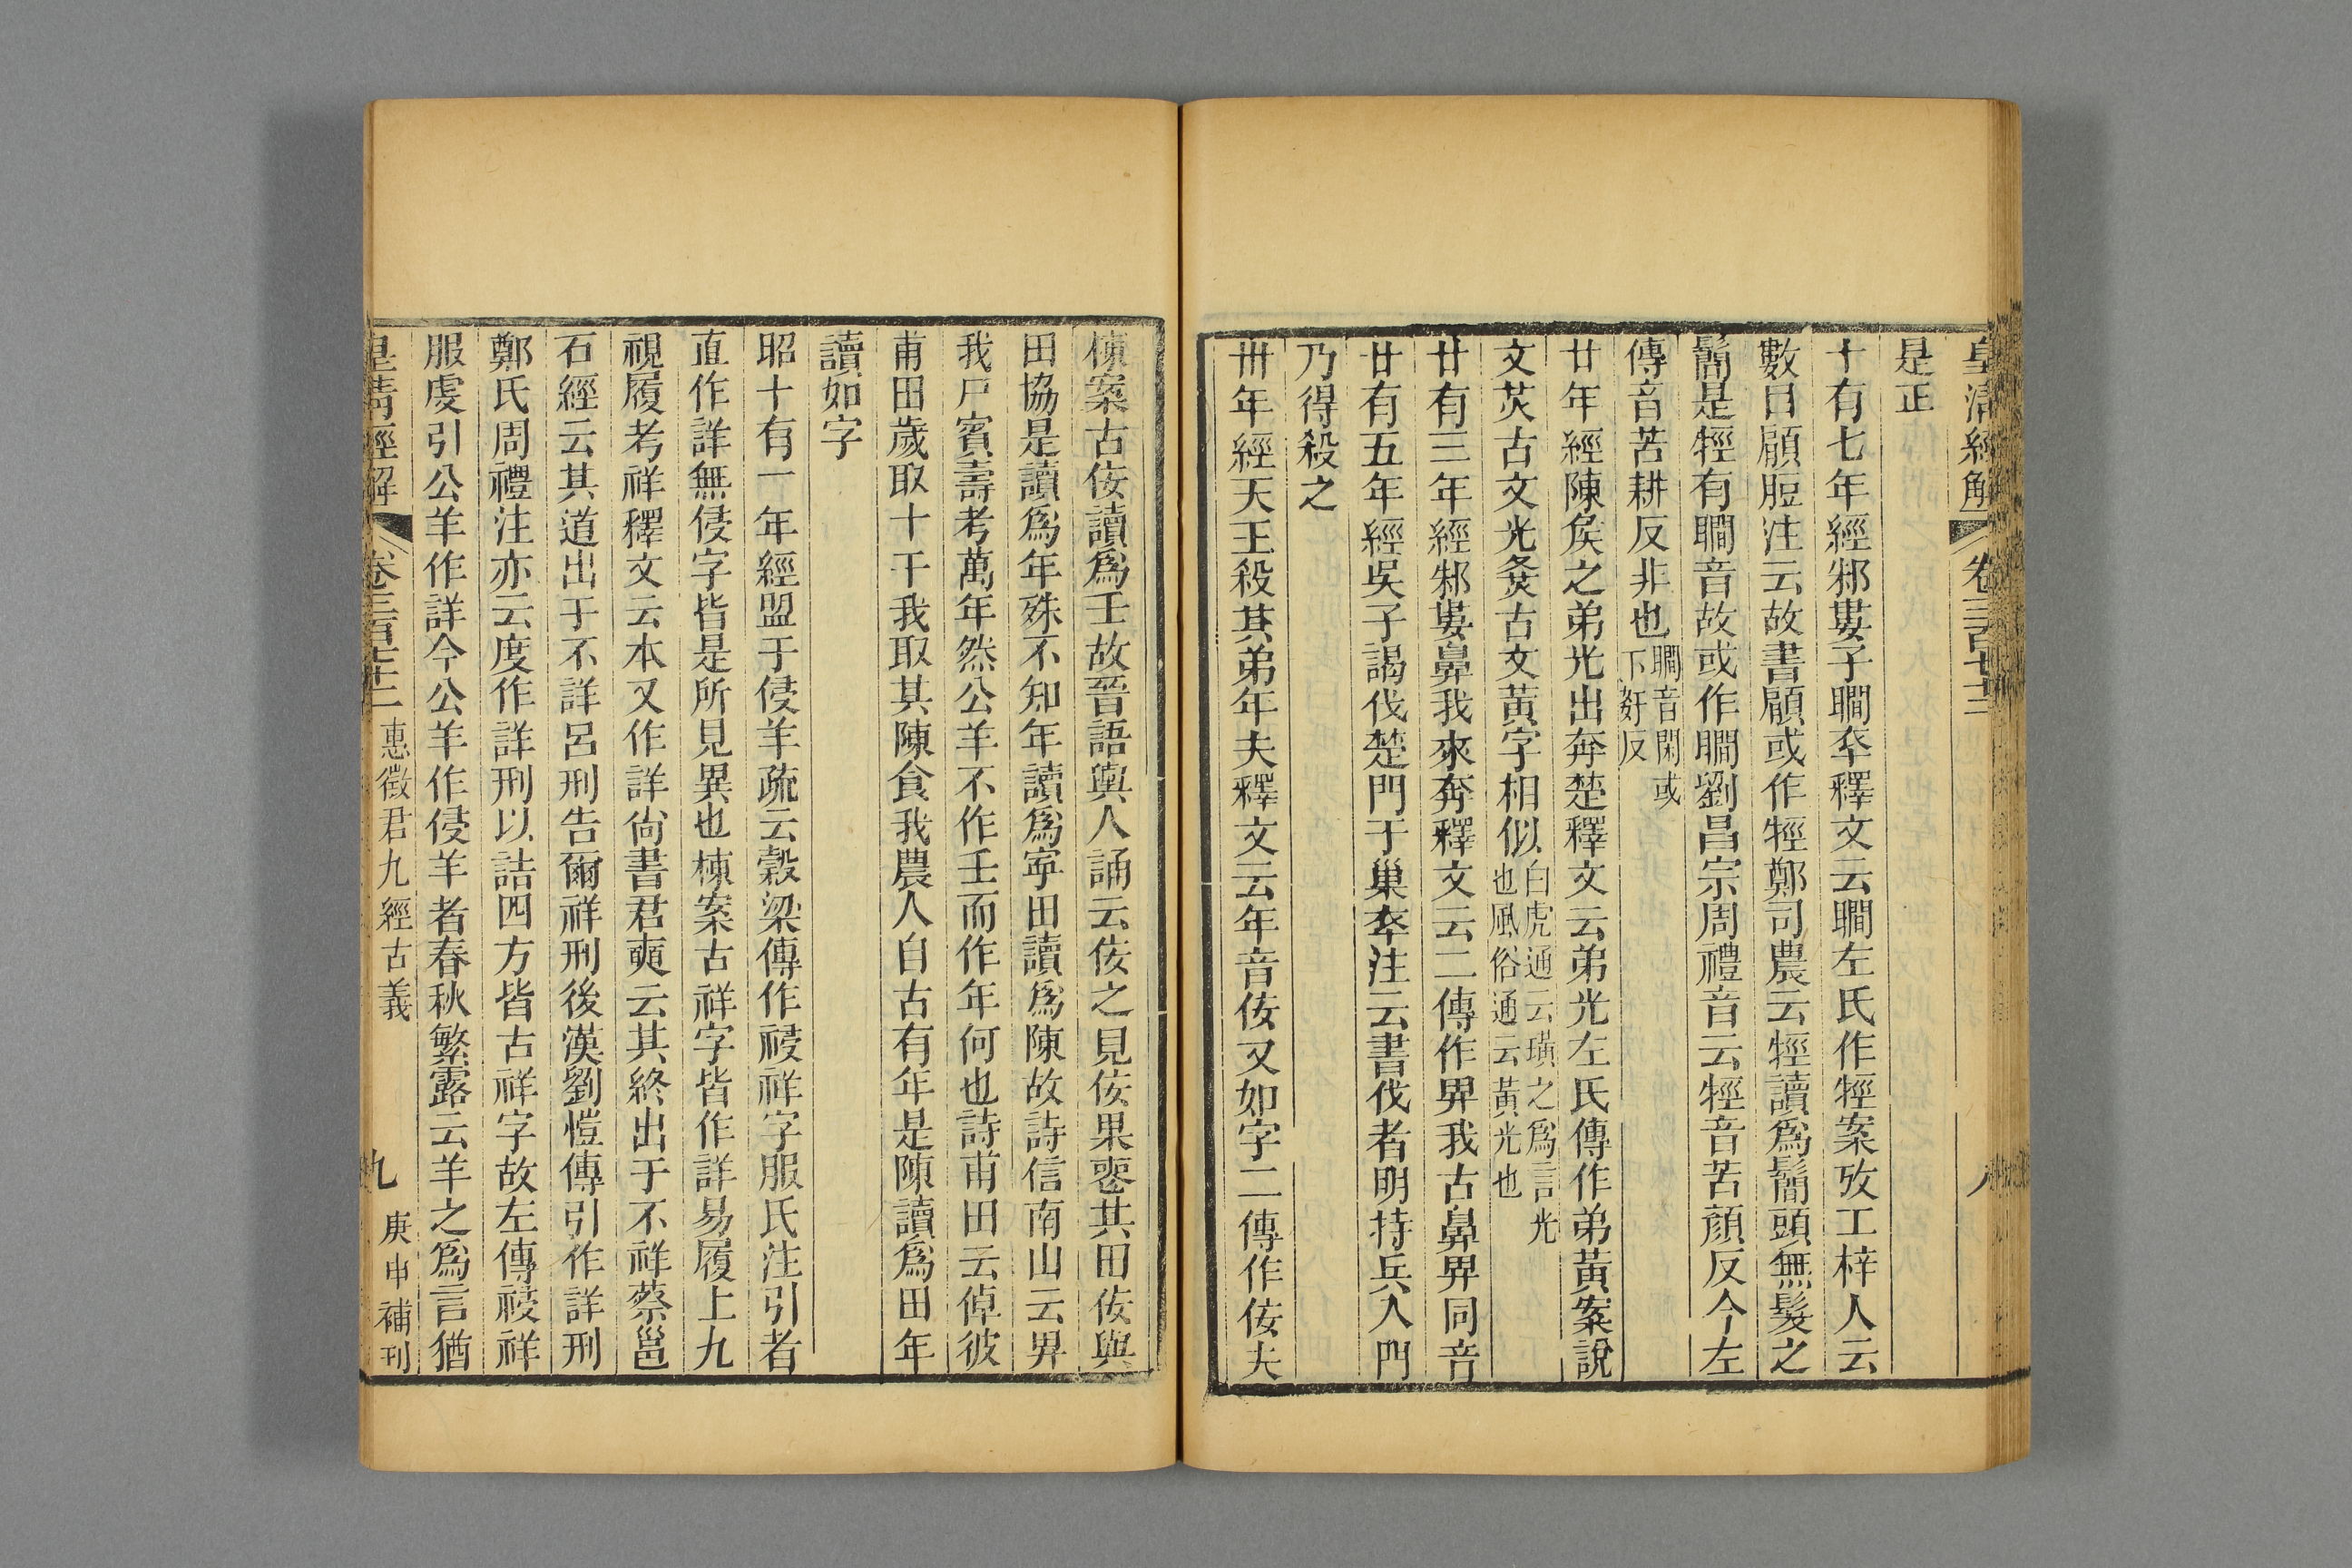 皇清經解 卷三百七十三 八
是正
十有七年經邾婁子瞷卒釋文云瞷左氏作牼案攷工梓人云
數目顧脰注云故書顧或作牼鄭司農云牼讀爲鬜頭無髮之
鬜是牼有瞷音故或作瞷劉昌宗周禮音云牼音苦顏反今左
傳音苦耕反非也瞷音閑或下姧反
廿年經陳矦之弟光出奔楚釋文云弟光左氏傳作弟黃案說
文炗古文光灮古文黃字相似白虎通云璜之爲言光也風俗通云黃光也
廿有三年經邾婁鼻我來奔釋文云二傳作畀我古鼻畀同音
廿有五年經吳子謁伐楚門于巢卒注云書伐者明持兵入門
乃得殺之
卅年經天王殺其弟年夫釋文云年音佞又如字二傳作佞夫
棟案古佞讀爲壬故晉語輿人誦云佞之見佞果喪其田佞與
田協是讀爲年殊不知年讀爲寜田讀爲陳故詩信南山云畀
我尸賓壽考萬年然公羊不作壬而作年何也詩甫田云倬彼
甫田歲取十千我取其陳食我農人自古有年是陳讀爲田年
讀如字
昭十有一年經盟于侵羊疏云穀梁傳作祲祥字服氏注引者
直作詳無侵字皆是所見異也棟案古祥字皆作詳易履上九
視履考祥釋文云本又作詳尙書君奭云其終出于不祥蔡邕
石經云其道出于不詳呂刑告爾祥刑後漢劉愷傳引作詳刑
鄭氏周禮注亦云度作詳刑以詰四方皆古祥字故左傳祲祥
服虔引公羊作詳今公羊作侵羊者春秋繁露云羊之爲言猶
皇清經解 卷三百七十三 惠徵君九經古義 九 庚申補刊